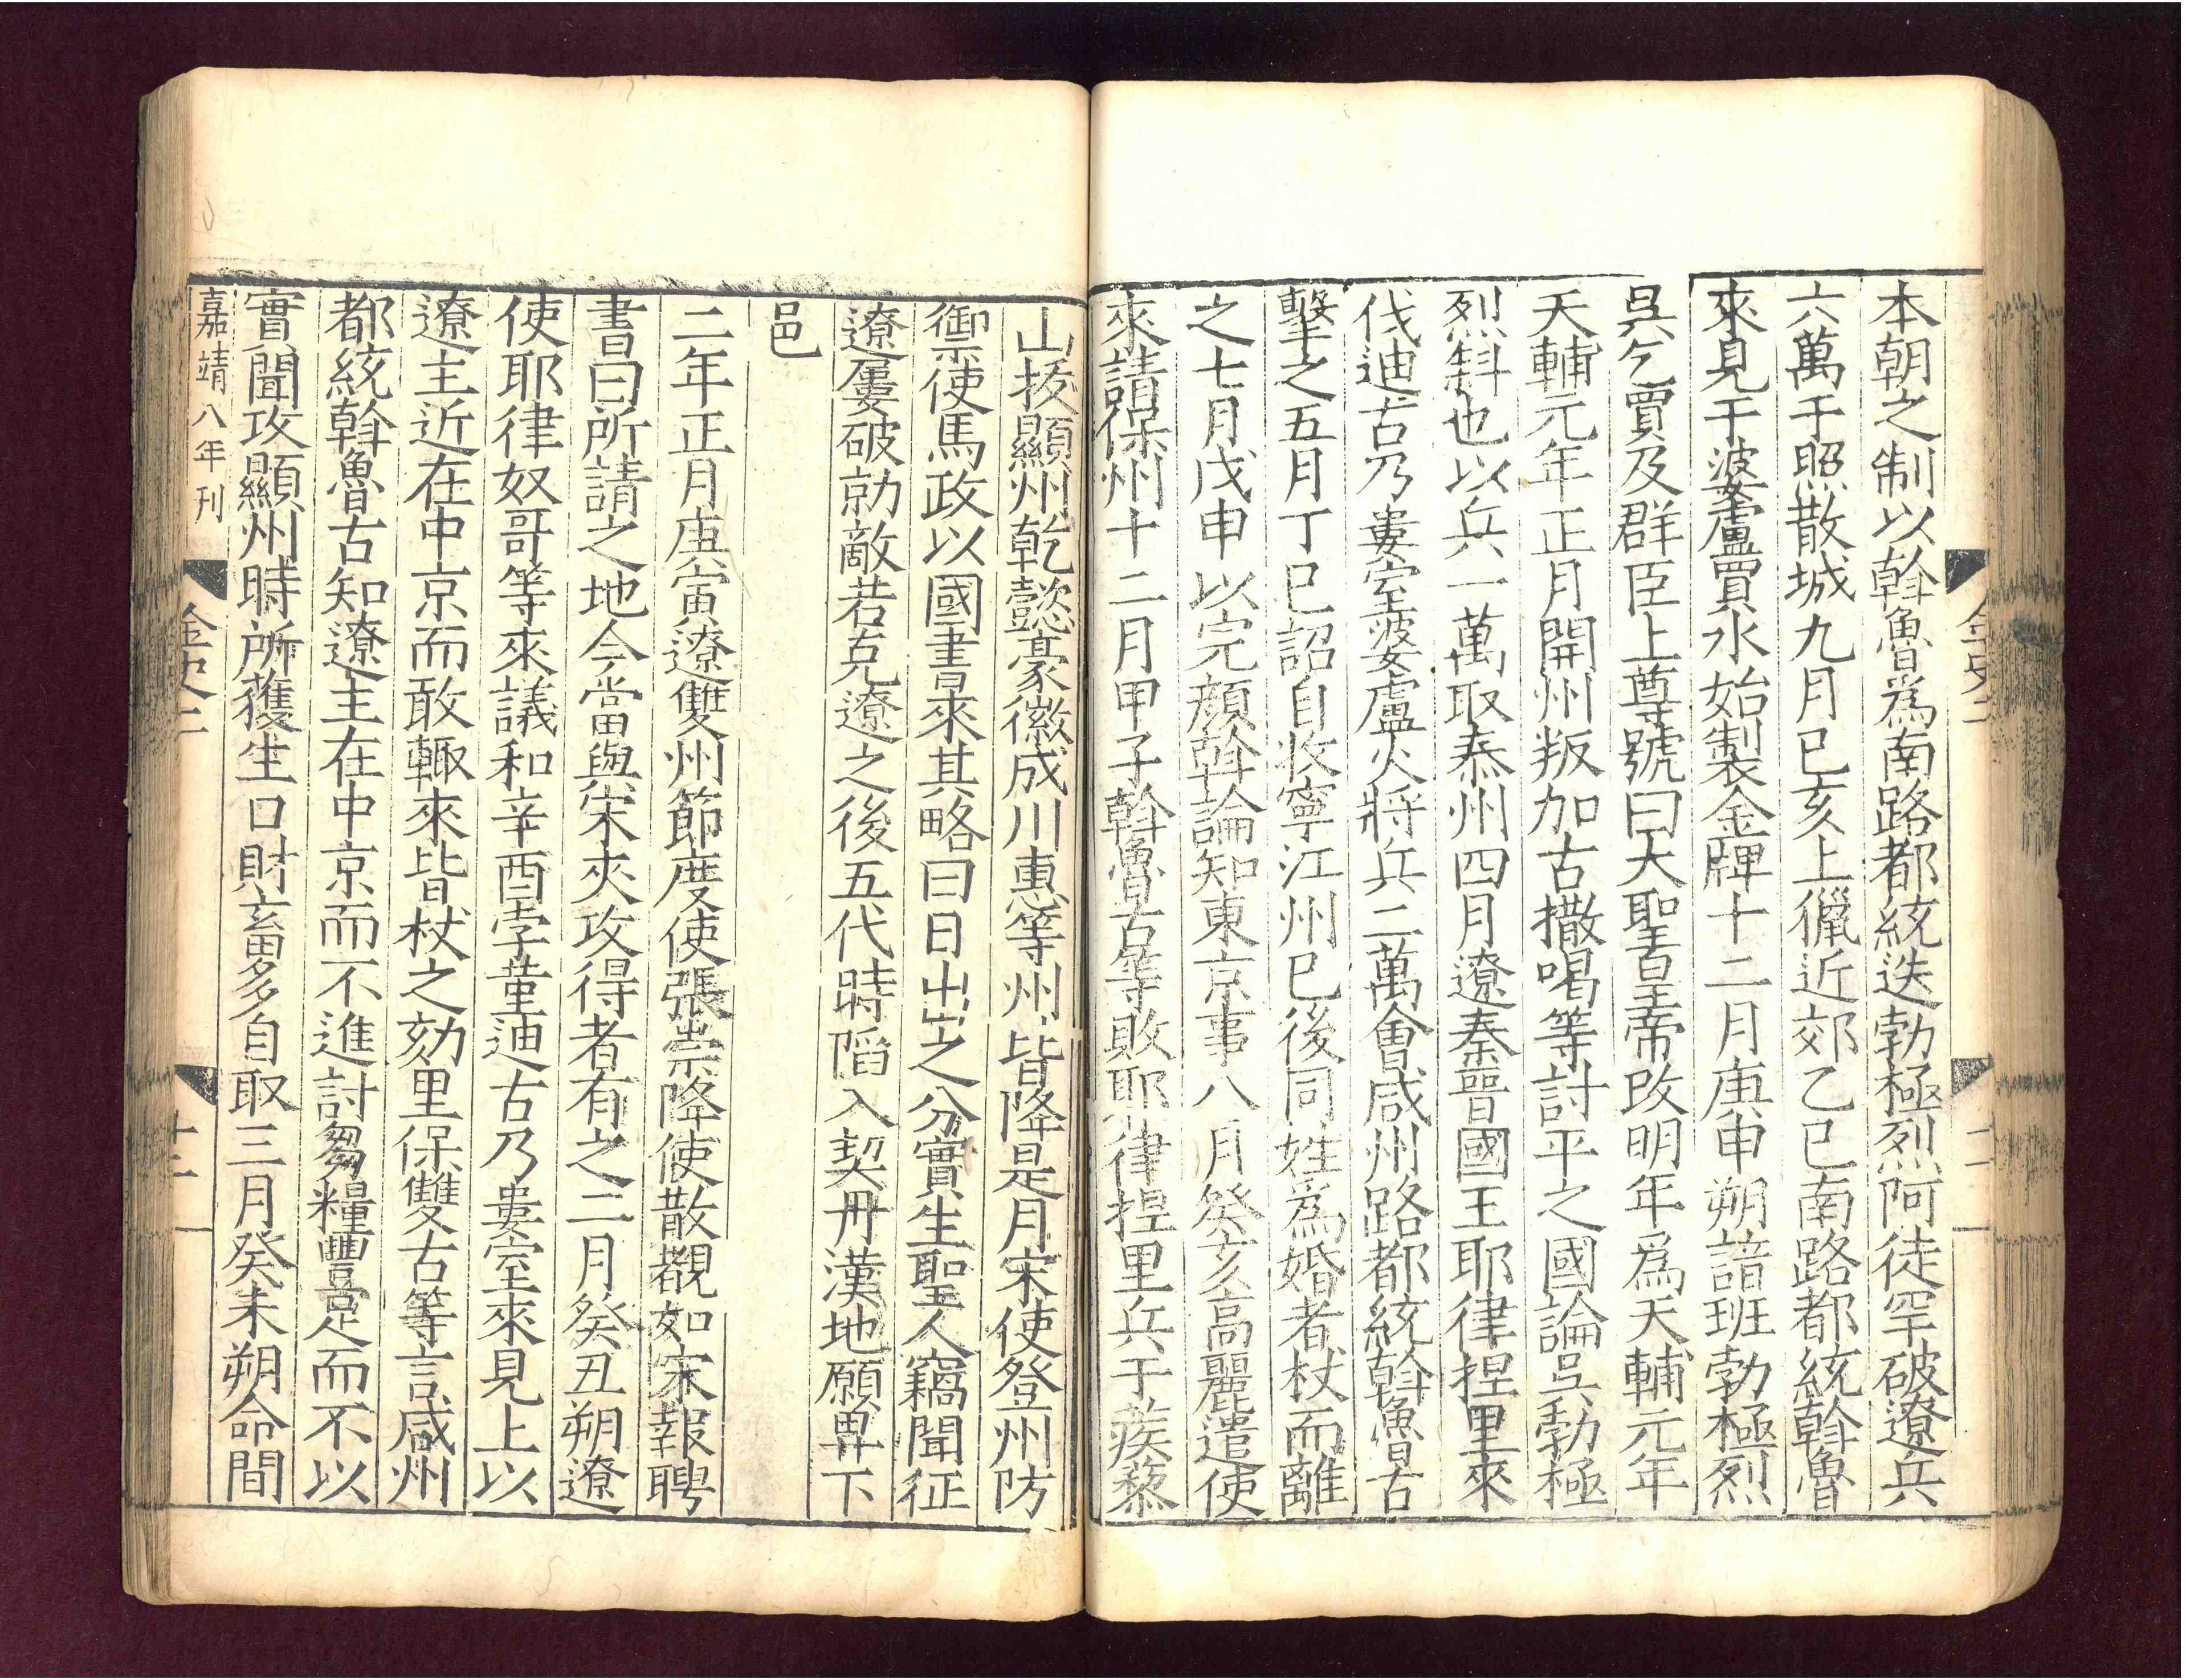 本朝之制以斡魯爲南路都統迭勃極烈阿徒罕破遼兵
六萬于照散城九月已亥上獵近郊乙巳南路都統斡魯
來見于婆盧買水始製金牌十二月庚申朔諳班勃極烈
吳乞買及群臣上尊號曰大聖皇帝改明年爲天輔元年
天輔元年正月開州叛加古撒喝等討平之國論吴勃極
烈斜也以兵一萬取泰州四月遼秦晉國王耶律揑里來
伐迪古乃婁室婆盧火將兵二萬會咸州路都統斡魯古
擊之五月丁巳詔自收寧江州已後同姓爲婚者杖而離
之七月戊申以完顏斡論知東京事八月癸亥高麗遣使
來請保州十二月甲子斡魯古等敗耶律揑里兵于蒺藜
山拔顯州乾懿豪徽成川惠等州皆降是月宋使登州防
禦使馬政以國書來其略曰日出之分實生聖人竊聞征
遼屢破勍敵若克遼之後五代時䧟入契丹漢地願畀下
邑
二年正月庚寅遼雙州節度使張崇降使散覩如宋報聘
書曰所請之地今當與宋夾攻得者有之二月癸丑朔遼
使耶律奴哥等來議和辛酉孛堇迪古乃婁室來見上以
遼主近在中京而敢輒來皆杖之劾里保雙古等言咸州
都統斡魯古知遼主在中京而不進討芻糧豐足而不以
實聞攻顯州時所獲生口財畜多自取三月癸未朔命間
嘉靖八年刊
金史二
十二